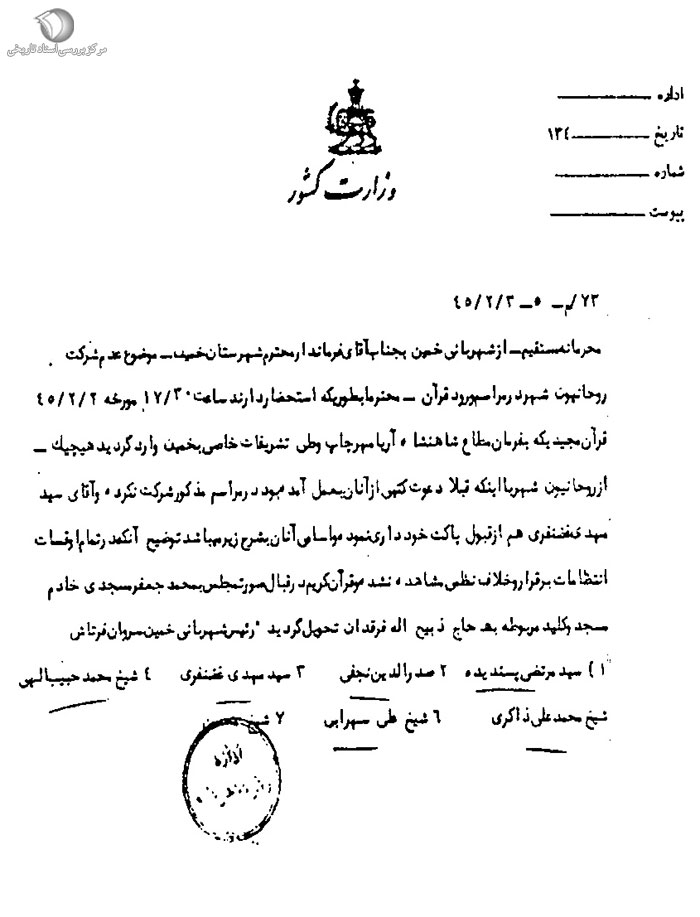 مرکز بررسی اسناد تاریخی
اداره
تاریخ ۱۳۴
شماره
پیوست
وزارت کشور
۷۳/م ـ ۵ ـ ۴۵/۲/۳
محرمانه مستقیم ـ از شهربانی خمین بجناب آقای فرماندار محترم شهرستان خمین ـ موضوع عدم شرکت
روحانیون شهر در مراسم ورود قرآن ـ محترما بطوریکه استحضار دارند ساعت ۱۷/۳۰ مورخه ۴۵/۲/۲
قرآن مجیدیکه بفرمان مطاع شاهنشاه آریامهر چاپ وطی تشریفات خاصی بخمین وارد گردید هیچیک ـ
از روحانیون شهر با اینکه قبلا دعوت کتبی از آنان بعمل آمده بود در مراسم مذکور شرکت نکرده وآقای سید
مهدی غضنفری هم از قبول پاکت خودداری نمود واسامی آنان بشرح زیر میباشد توضیح آنکه در تمام اوقات
انتظامات برقرار وخلاف نظمی مشاهده نشد وقرآن کریم در قبال صورتمجلس بمحمد جعفر مسجدی خادم
مسجد وکلید مربوطه به حاج ذبیح اله فرقدان تحویل گردید رئیس شهربانی خمین سروان فرتاش
۱) سید مرتضی پسندیده ۲ صدرالدین نجفی ۳ سید مهدی غضنفری ۴ شیخ محمد حبیب الهی
شیخ محمد علی ذاکری ۶ شیخ علی سهرابی ۷ شیخ
اداره